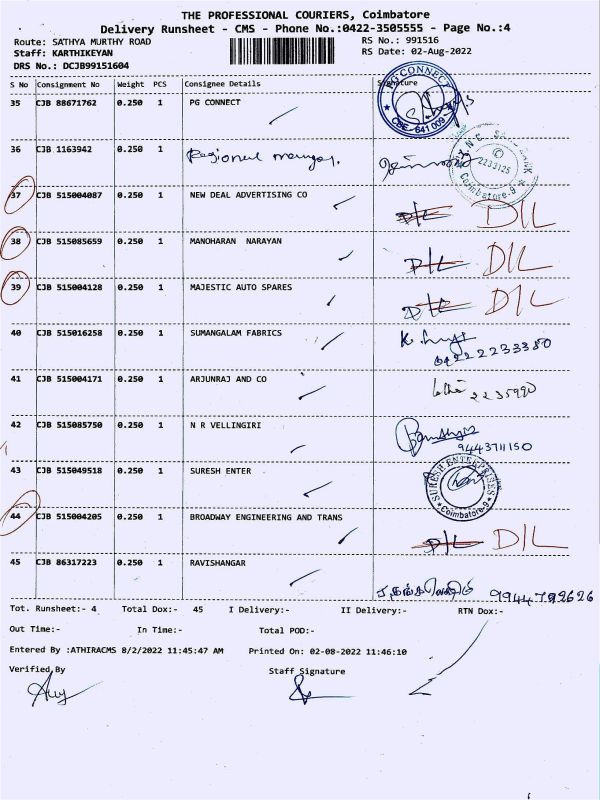 THE PROFESSIONAL COURIERS, Coimbatore
Delivery Runsheet - CMS - Phone No.:0422-3505555 - Page No.:4
Route: SATHYA MURTHY ROAD
RS No.: 991516
Staff: KARTHIKEYAN
RS Date: 02-Aug-2022
DRS No.: DCJB99151604
S No Consignment No Weight PCS Consignee Details Signature
35 CJB 88671762 0.250 1 PG CONNECT
PG CONNECT
CBE-641 009
36 CJB 1163942 0.250 1 Regional manager.
2233125
Coimbatore-9
37 CJB 515004087 0.250 1 NEW DEAL ADVERTISING CO
D/L D/L
38 CJB 515085659 0.250 1 MANOHARAN NARAYAN
D/L D/L
39 CJB 515004128 0.250 1 MAJESTIC AUTO SPARES
D/L D/L
40 CJB 515016258 0.250 1 SUMANGALAM FABRICS
04222233380
41 CJB 515004171 0.250 1 ARJUNRAJ AND CO
2235990
42 CJB 515085750 0.250 1 N R VELLINGIRI
9443711150
43 CJB 515049518 0.250 1 SURESH ENTER
SURESH ENTERPRISES
Coimbatore-9
44 CJB 515004205 0.250 1 BROADWAY ENGINEERING AND TRANS
D/L D/L
45 CJB 86317223 0.250 1 RAVISHANGAR
9944792626
Tot. Runsheet:- 4 Total Dox:- 45 I Delivery:- II Delivery:- RTN Dox:-
Out Time:- In Time:- Total POD:-
Entered By :ATHIRACMS 8/2/2022 11:45:47 AM Printed On: 02-08-2022 11:46:10
Verified By Staff Signature